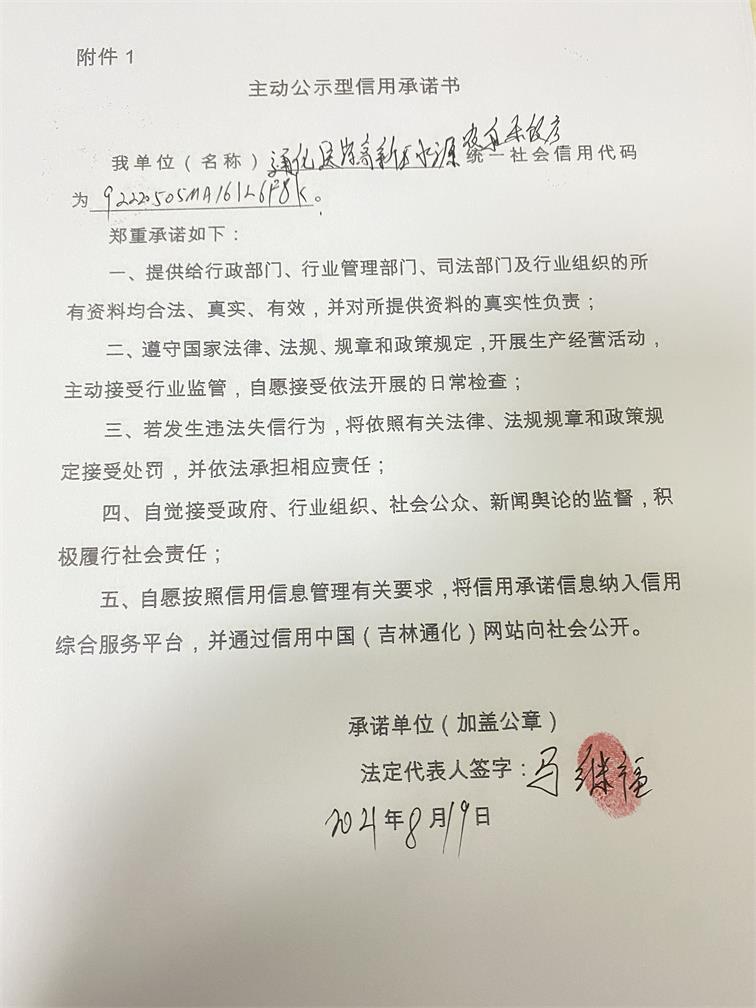 附件 1
主动公示型信用承诺书
我单位（名称）通化医药高新区水源农自乐饭店统一社会信用代码
为 92220505MA161L6F8K。
郑重承诺如下：
一、提供给行政部门、行业管理部门、司法部门及行业组织的所
有资料均合法、真实、有效，并对所提供资料的真实性负责；
二、遵守国家法律、法规、规章和政策规定，开展生产经营活动，
主动接受行业监管，自愿接受依法开展的日常检查；
三、若发生违法失信行为，将依照有关法律、法规规章和政策规
定接受处罚，并依法承担相应责任；
四、自觉接受政府、行业组织、社会公众、新闻舆论的监督，积
极履行社会责任；
五、自愿按照信用信息管理有关要求，将信用承诺信息纳入信用
综合服务平台，并通过信用中国（吉林通化）网站向社会公开。
承诺单位（加盖公章）
法定代表人签字：马继福
2021年8月19日